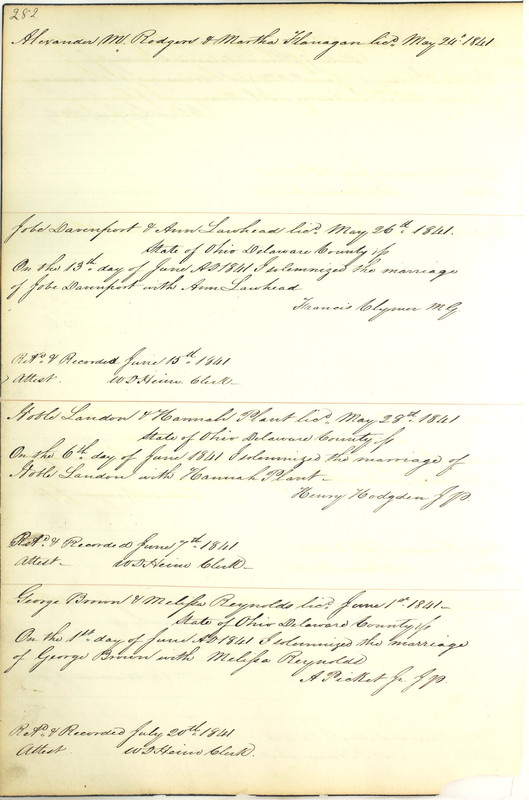 282
Alexander M. Rodgers & Martha Flanagan licd. May 24th 1841
Jobe Davenport & Ann Lawhead licd. May 26th 1841.
State of Ohio Delaware County ss
On the 13th day of June AD 1841 I solemnized the marriage
of Jobe Davenport with Ann Lawhead
Francis Clymer M G
Retd. & Recorded June 15th 1841
Attest. W D Heim Clerk
Noble Landon & Hannah Plant licd. May 28th 1841
State of Ohio Delaware County ss
On the 6th day of June 1841 I solemnized the marriage of
Noble Landon with Hannah Plant
Henry Hodgden J P
Retd. & Recorded June 7th 1841
Attest W D Heim Clerk
George Brown & Melissa Reynolds licd. June 1st 1841
State of Ohio Delaware County ss
On the 1st day of June AD 1841 I solemnized the marriage
of George Brown with Melissa Reynolds
A Picket Jr. J P
Retd. & Recorded July 20th 1841
Attest W D Heim Clerk.